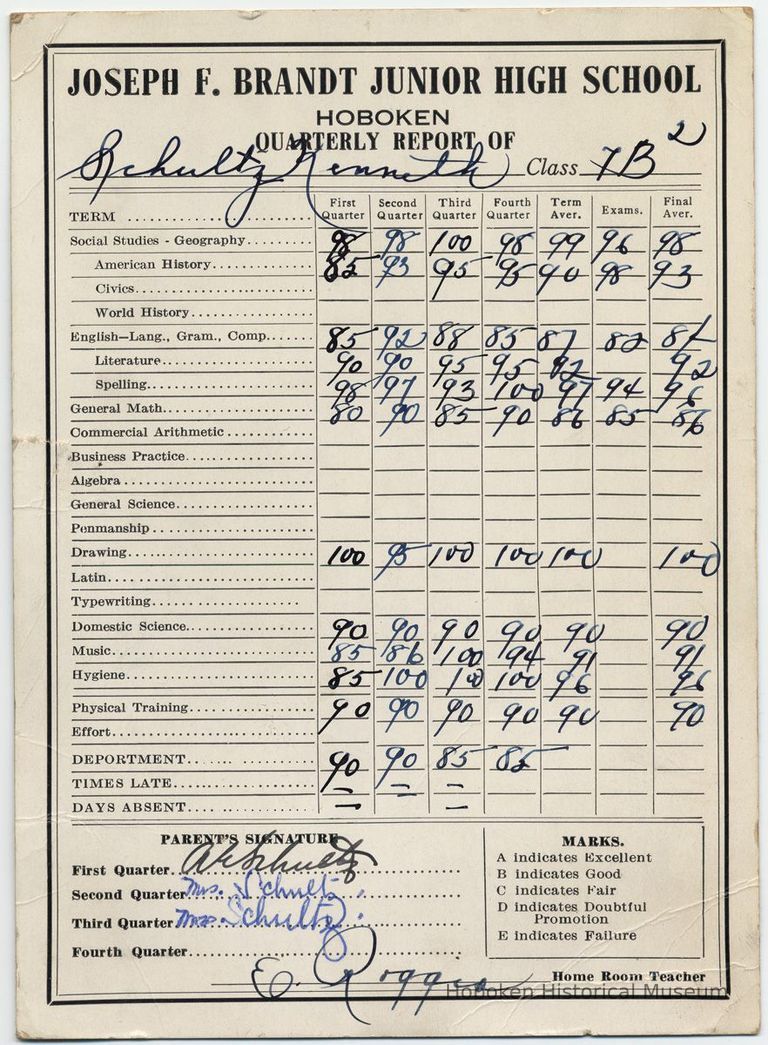 JOSEPH F. BRANDT JUNIOR HIGH SCHOOL
HOBOKEN
QUARTERLY REPORT OF
Schultz Kenneth Class 7B2
TERM First Quarter Second Quarter Third Quarter Fourth Quarter Term Aver. Exams. Final Aver.
Social Studies - Geography 98 98 100 98 99 96 98
American History 85 93 95 95 90 98 93
Civics
World History
English—Lang., Gram., Comp. 85 92 88 85 87 82
Literature 90 90 95 95 92 92
Spelling 98 97 93 100 97 94 96
General Math. 80 90 85 90 86 85 86
Commercial Arithmetic
Business Practice
Algebra
General Science
Penmanship
Drawing 100 95 100 100 100 100
Latin
Typewriting
Domestic Science 90 90 90 90 90 90
Music 85 86 100 94 91 91
Hygiene 85 100 100 100 96 96
Physical Training 90 90 90 90 90 90
Effort
DEPORTMENT 90 90 85 85
TIMES LATE — — —
DAYS ABSENT — —
PARENT'S SIGNATURE
First Quarter Schultz
Second Quarter Mrs. Schultz.
Third Quarter Mrs. Schultz.
Fourth Quarter
MARKS.
A indicates Excellent
B indicates Good
C indicates Fair
D indicates Doubtful
Promotion
E indicates Failure
E. Home Room Teacher
Hoboken Historical Museum